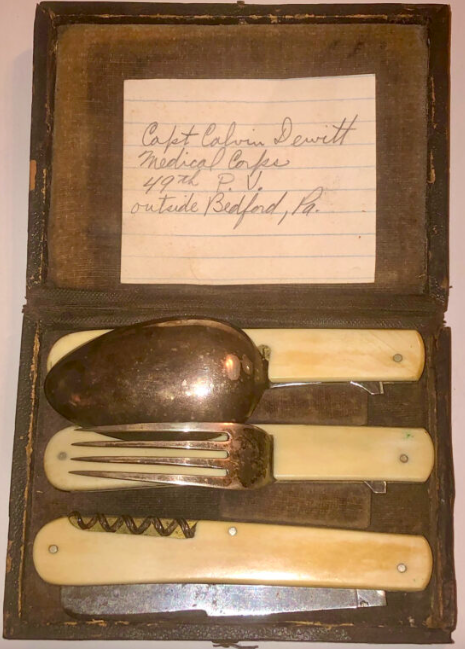 Capt Calvin Dewitt
Medical Corps
49th P. V.
outside Bedford, Pa.